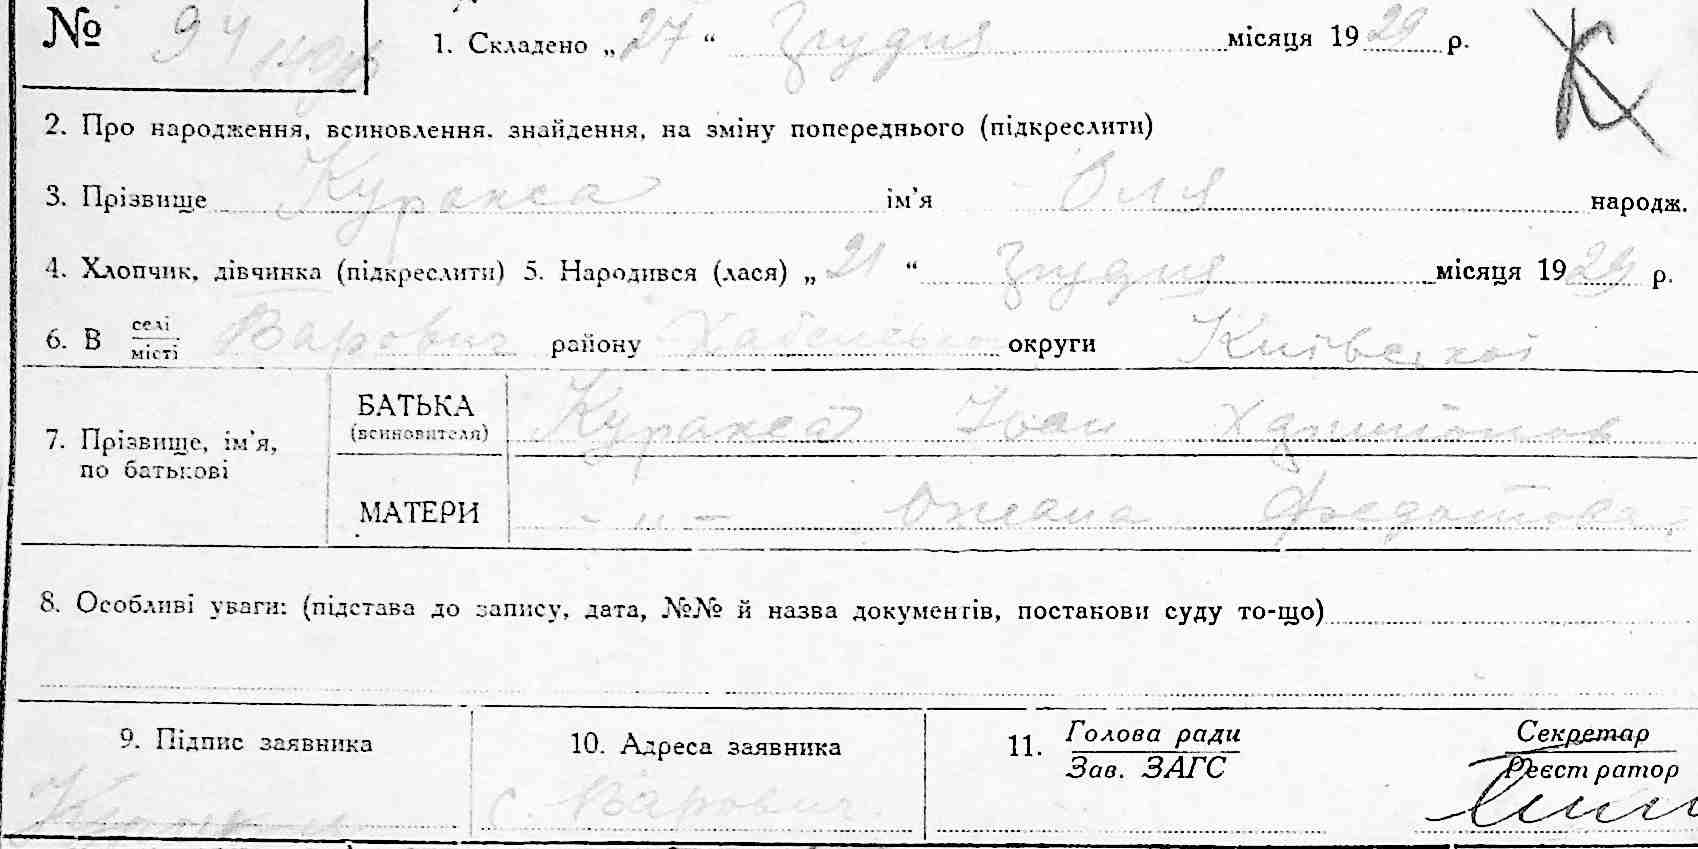 № 94 нар
1. Складено „27“ Грудня місяця 1929 р.
2. Про народження, всиновлення. знайдення, на зміну попереднього (підкреслити)
3. Прізвище Куракса ім'я Оля народж.
4. Хлопчик, дівчинка (підкреслити) 5. Народився (лася) „21“ Грудня місяця 1929 р.
6. В селі/місті Варовичі району Хабенсько округи Київської
7. Прізвище, ім'я, по батькові
БАТЬКА (всиновителя) Куракса Іван Харитонов
МАТЕРИ - „ - Оксана Федотова
8. Особливі уваги: (підстава до запису, дата, №№ й назва документів, постакови суду то-що)
9. Підпис заявника 10. Адреса заявника 11. Голова ради Секретар
Зав. ЗАГС Реєстратор
с. Варовичі